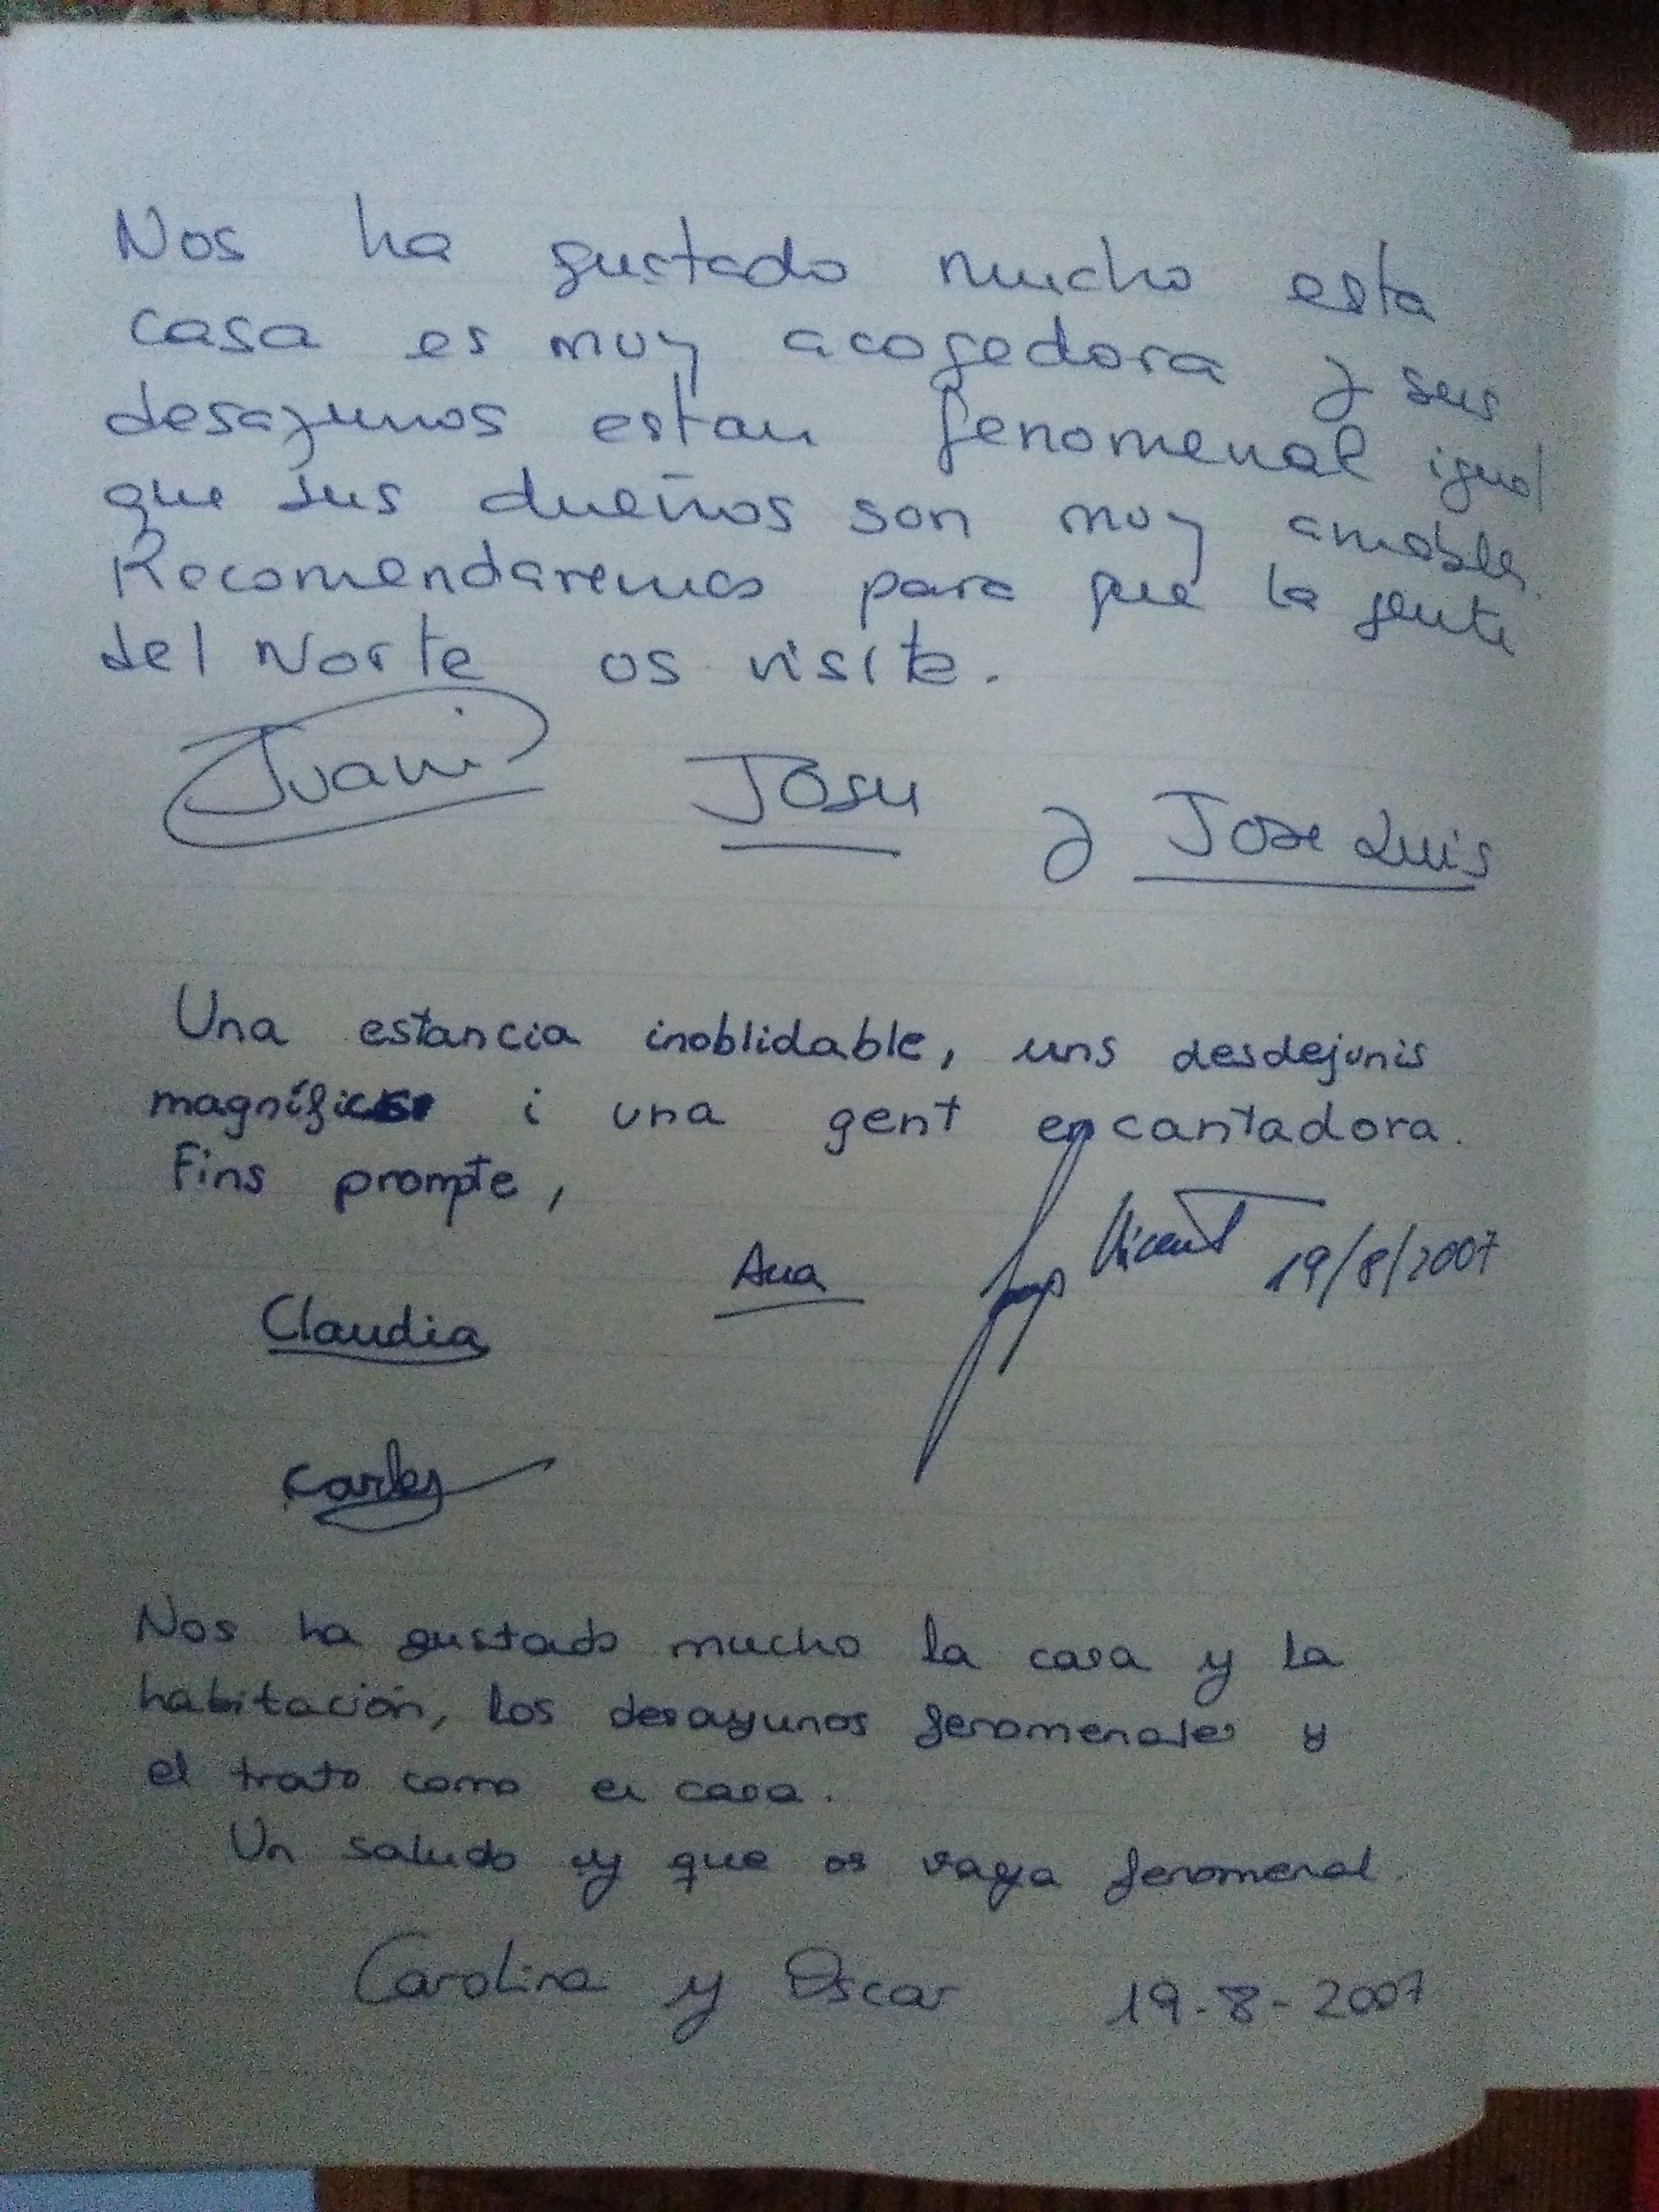 Nos ha gustado mucho esta
casa es muy acogedora y sus
desayunos estan fenomenal igual
que sus dueños son muy amables
Recomendaremos para que la gente
del Norte os visite.
Juani Josu y Jose Luis
Una estancia inoblidable, uns desdejunis
magnífics i una gent encantadora.
Fins prompte,
Ana Vicent 19/8/2007
Claudia
Carles
Nos ha gustado mucho la casa y la
habitación, los desayunos fenomenales y
el trato como en casa.
Un saludo y que os vaya fenomenal.
Carolina y Oscar 19-8-2007